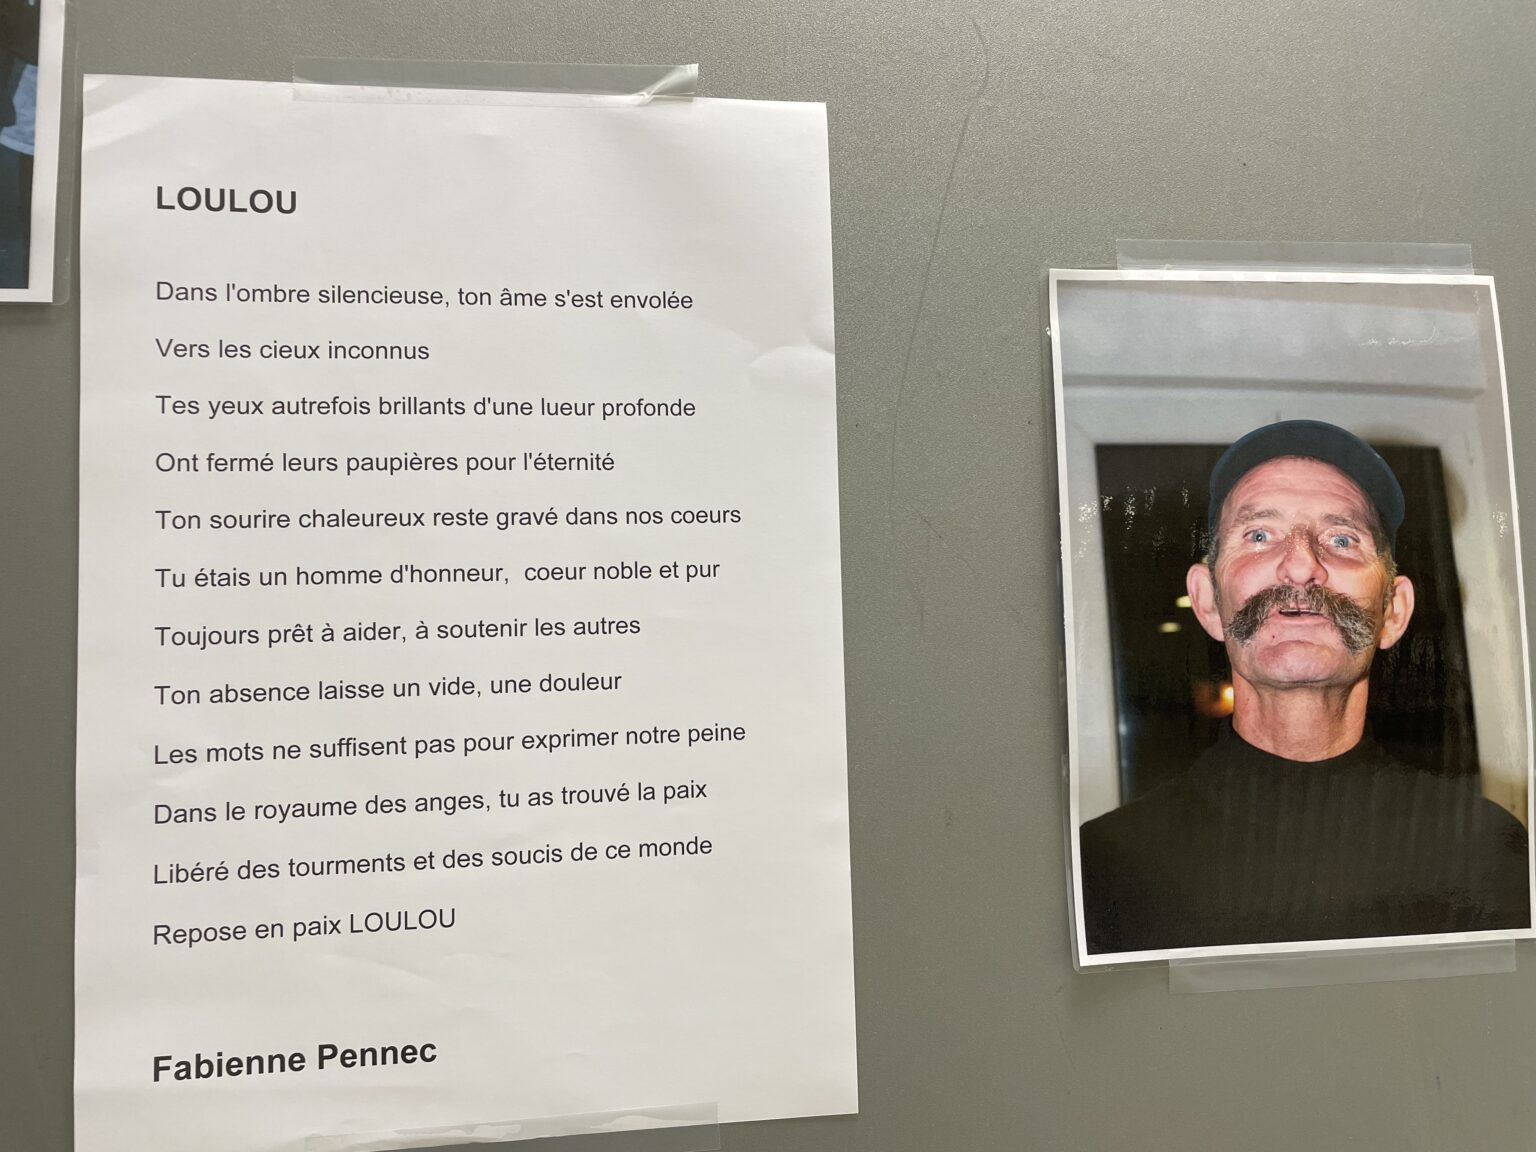 LOULOU
Dans l'ombre silencieuse, ton âme s'est envolée
Vers les cieux inconnus
Tes yeux autrefois brillants d'une lueur profonde
Ont fermé leurs paupières pour l'éternité
Ton sourire chaleureux reste gravé dans nos coeurs
Tu étais un homme d'honneur,  coeur noble et pur
Toujours prêt à aider, à soutenir les autres
Ton absence laisse un vide, une douleur
Les mots ne suffisent pas pour exprimer notre peine
Dans le royaume des anges, tu as trouvé la paix
Libéré des tourments et des soucis de ce monde
Repose en paix LOULOU
Fabienne Pennec